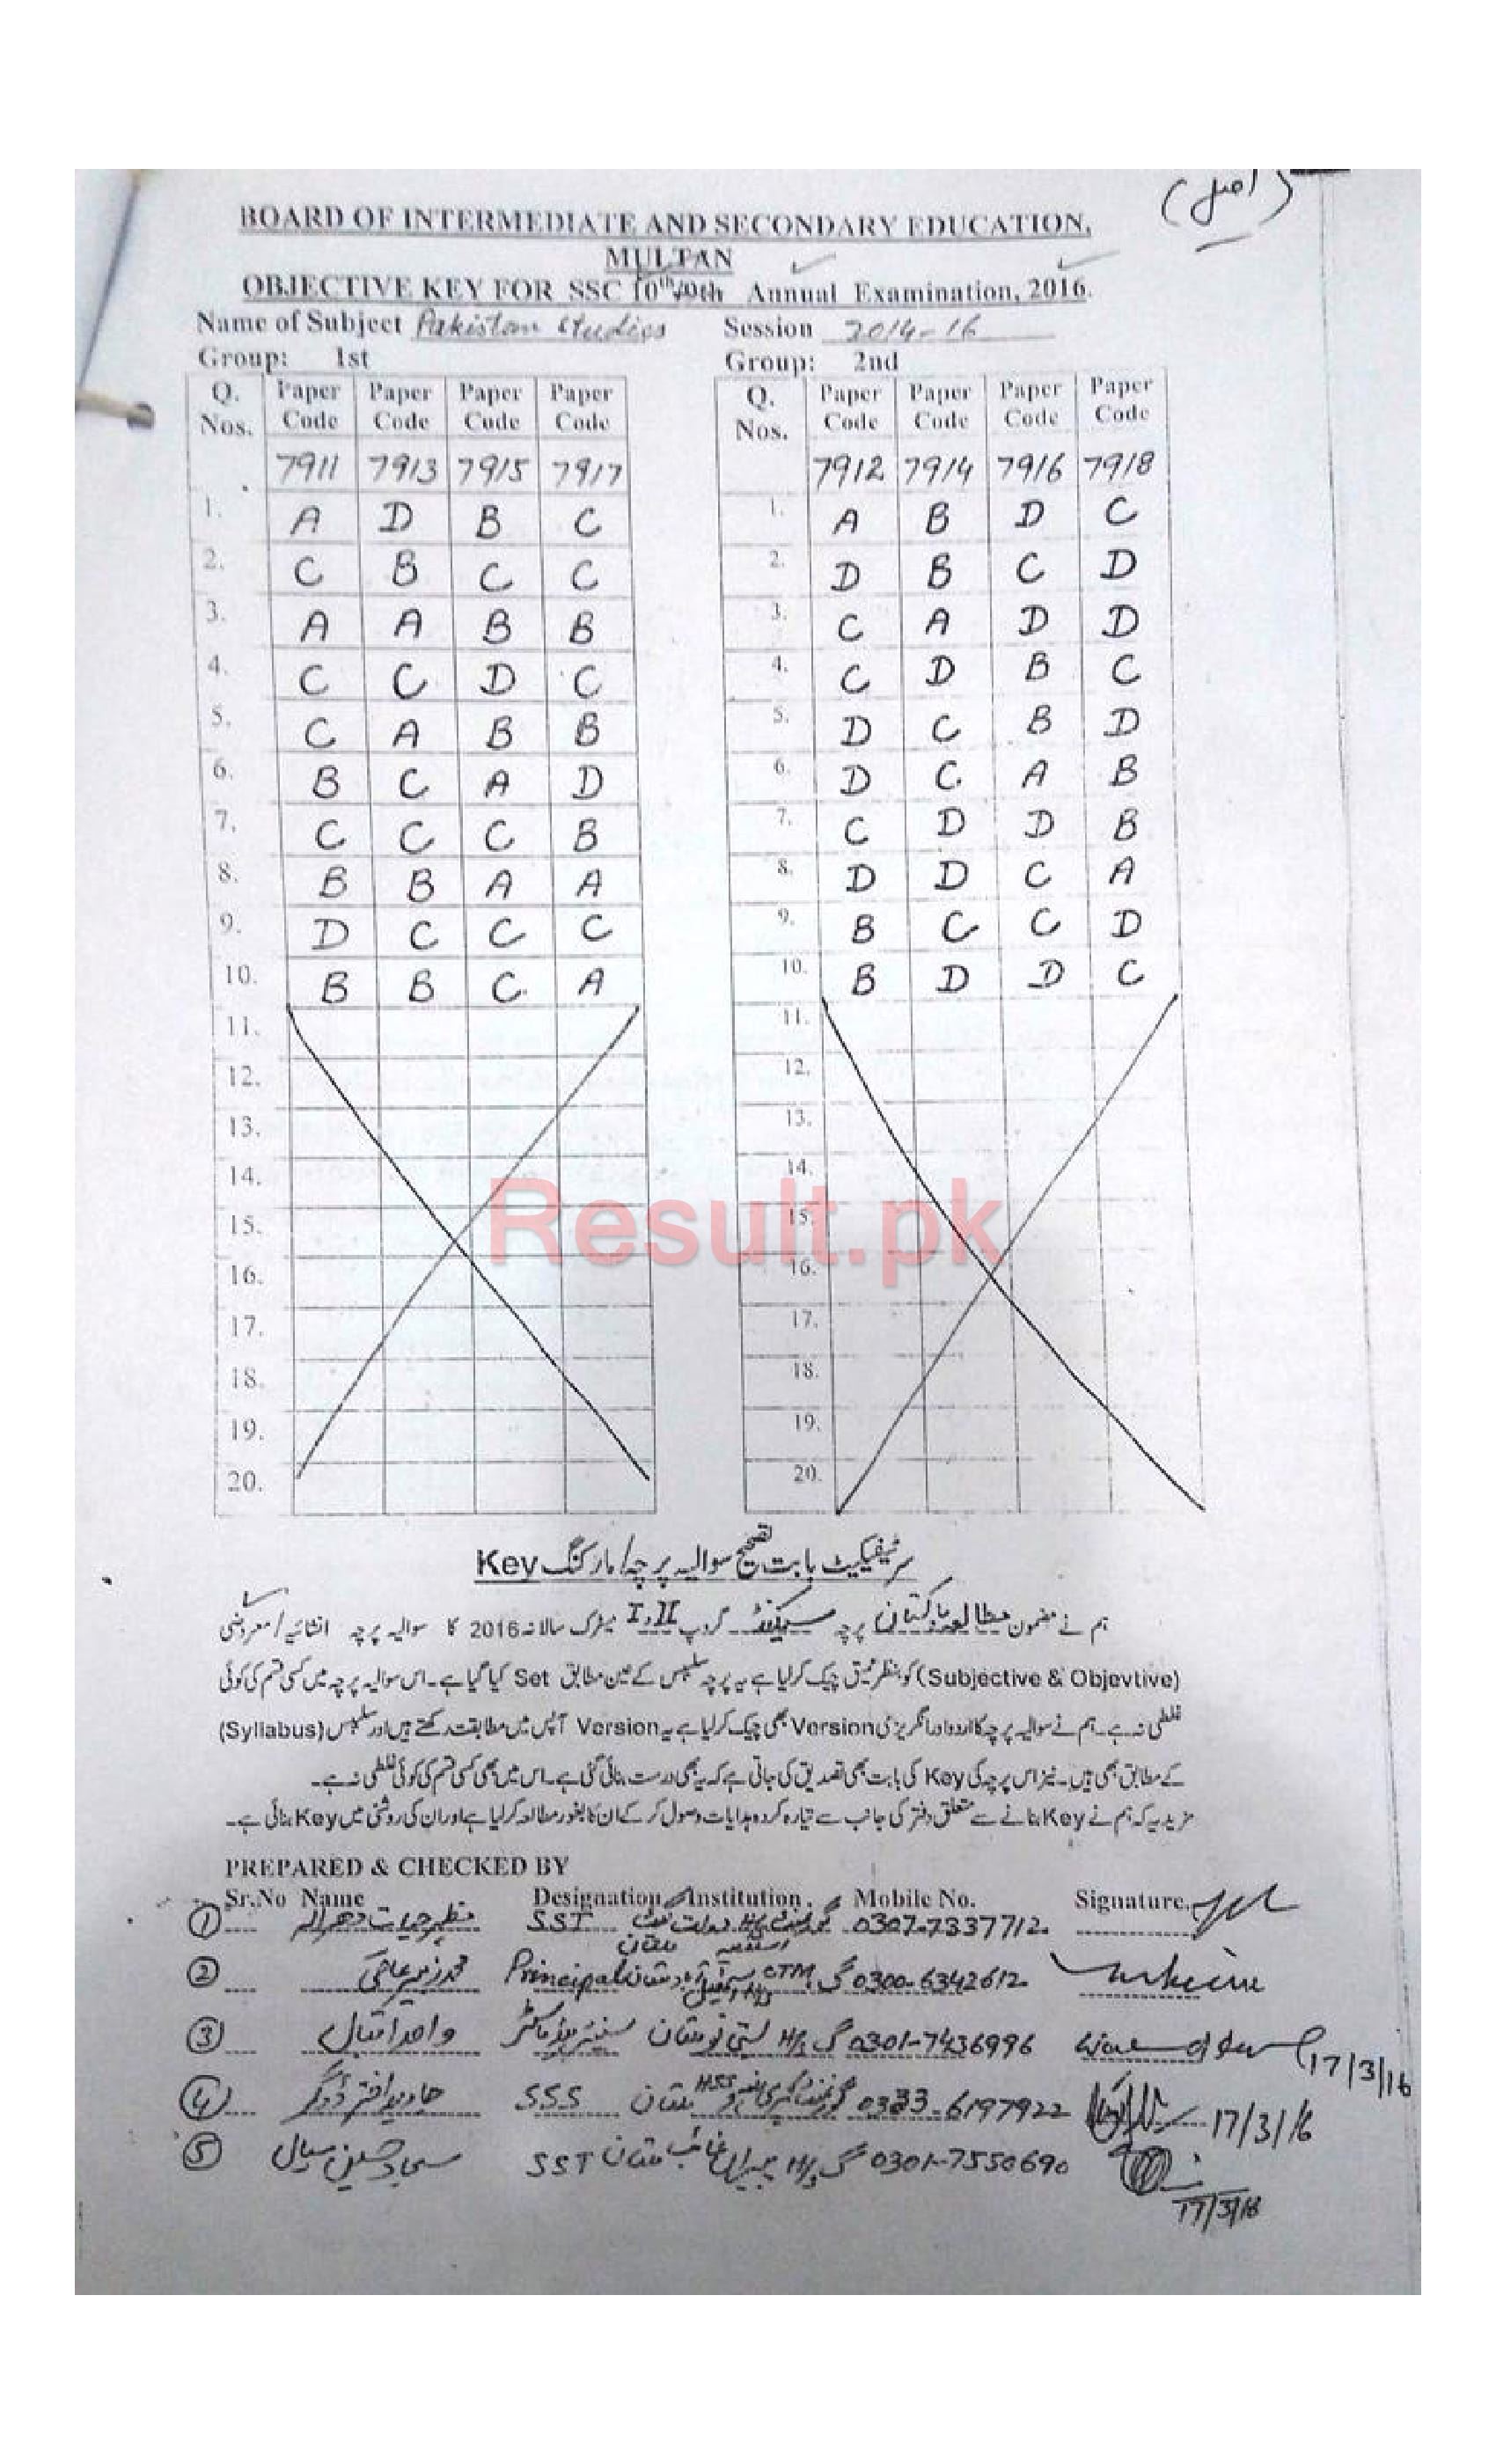 (اصل)
BOARD OF INTERMEDIATE AND SECONDARY EDUCATION,
MULTAN
OBJECTIVE KEY FOR SSC 10th/9th Annual Examination, 2016.
Name of Subject Pakistan Studies Session 2014-16
Group: 1st Group: 2nd
Q. Nos. Paper Code Paper Code Paper Code Paper Code Q. Nos. Paper Code Paper Code Paper Code Paper Code
7911 7913 7915 7917 7912 7914 7916 7918
1. A D B C 1. A B D C
2. C B C C 2. D B C D
3. A A B B 3. C A D D
4. C C D C 4. C D B C
5. C A B B 5. D C B D
6. B C A D 6. D C A B
7. C C C B 7. C D D B
8. B B A A 8. D D C A
9. D C C C 9. B C C D
10. B B C A 10. B D D C
11. 11.
12. 12.
13. 13.
14. 14.
15. 15.
16. 16.
17. 17.
18. 18.
19. 19.
20. 20.
Result.pk
سرٹیفکیٹ بابت تصحیح سوالیہ پرچہ/مارکنگ Key
ہم نے مضمون مطالعہ پاکستان پرچہ سیکنڈ گروپ I,II میٹرک سالانہ 2016 کا سوالیہ پرچہ انشائیہ/معروضی
(Subjective & Objevtive) کو بنظر عمیق چیک کرلیا ہے یہ پرچہ سلیبس کے عین مطابق Set کیا گیا ہے۔اس سوالیہ پرچہ میں کسی قسم کی کوئی
غلطی نہ ہے۔ہم نے سوالیہ پرچہ کا اردو اور انگریزی Version بھی چیک کرلیا ہے یہ Version آپس میں مطابقت رکھتے ہیں اور سلیبس (Syllabus)
کے مطابق بھی ہیں۔نیز اس پرچہ کی Key کی بابت بھی تصدیق کی جاتی ہے کہ یہ بھی درست بنائی گئی ہے۔اس میں بھی کسی قسم کی کوئی غلطی نہ ہے۔
مزید یہ کہ ہم نے Key بنانے سے متعلق دفتر کی جانب سے تیار کردہ ہدایات وصول کرکے ان کا بغور مطالعہ کرلیا ہے اور ان کی روشنی میں Key بنائی ہے۔
PREPARED & CHECKED BY
Sr.No Name Designation Institution Mobile No. Signature
1 SST ملتان 0307-7337712
2 Principal ملتان 0300-6342612
3 واحد اقبال سینئر ہیڈ ماسٹر ملتان 0301-7436996 17/3/16
4 SSS ملتان HSS 0333-6197922 17/3/16
5 سجاد حسین سیال SST ملتان 0301-7550690
17/3/16